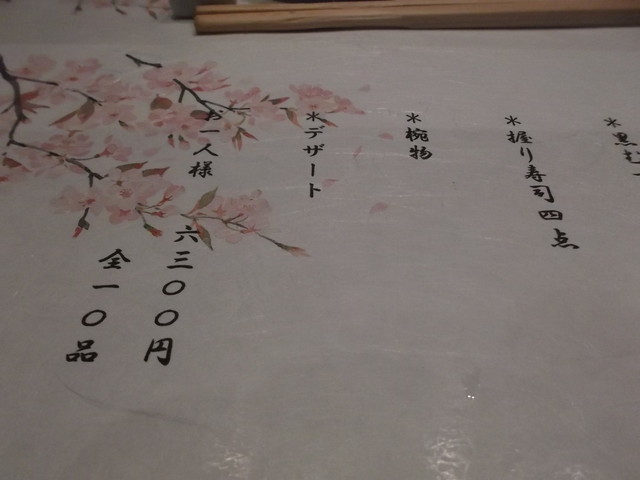 ＊黒む
＊握り寿司四点
＊椀物
＊デザート
お一人様 六三〇〇円
全一〇品